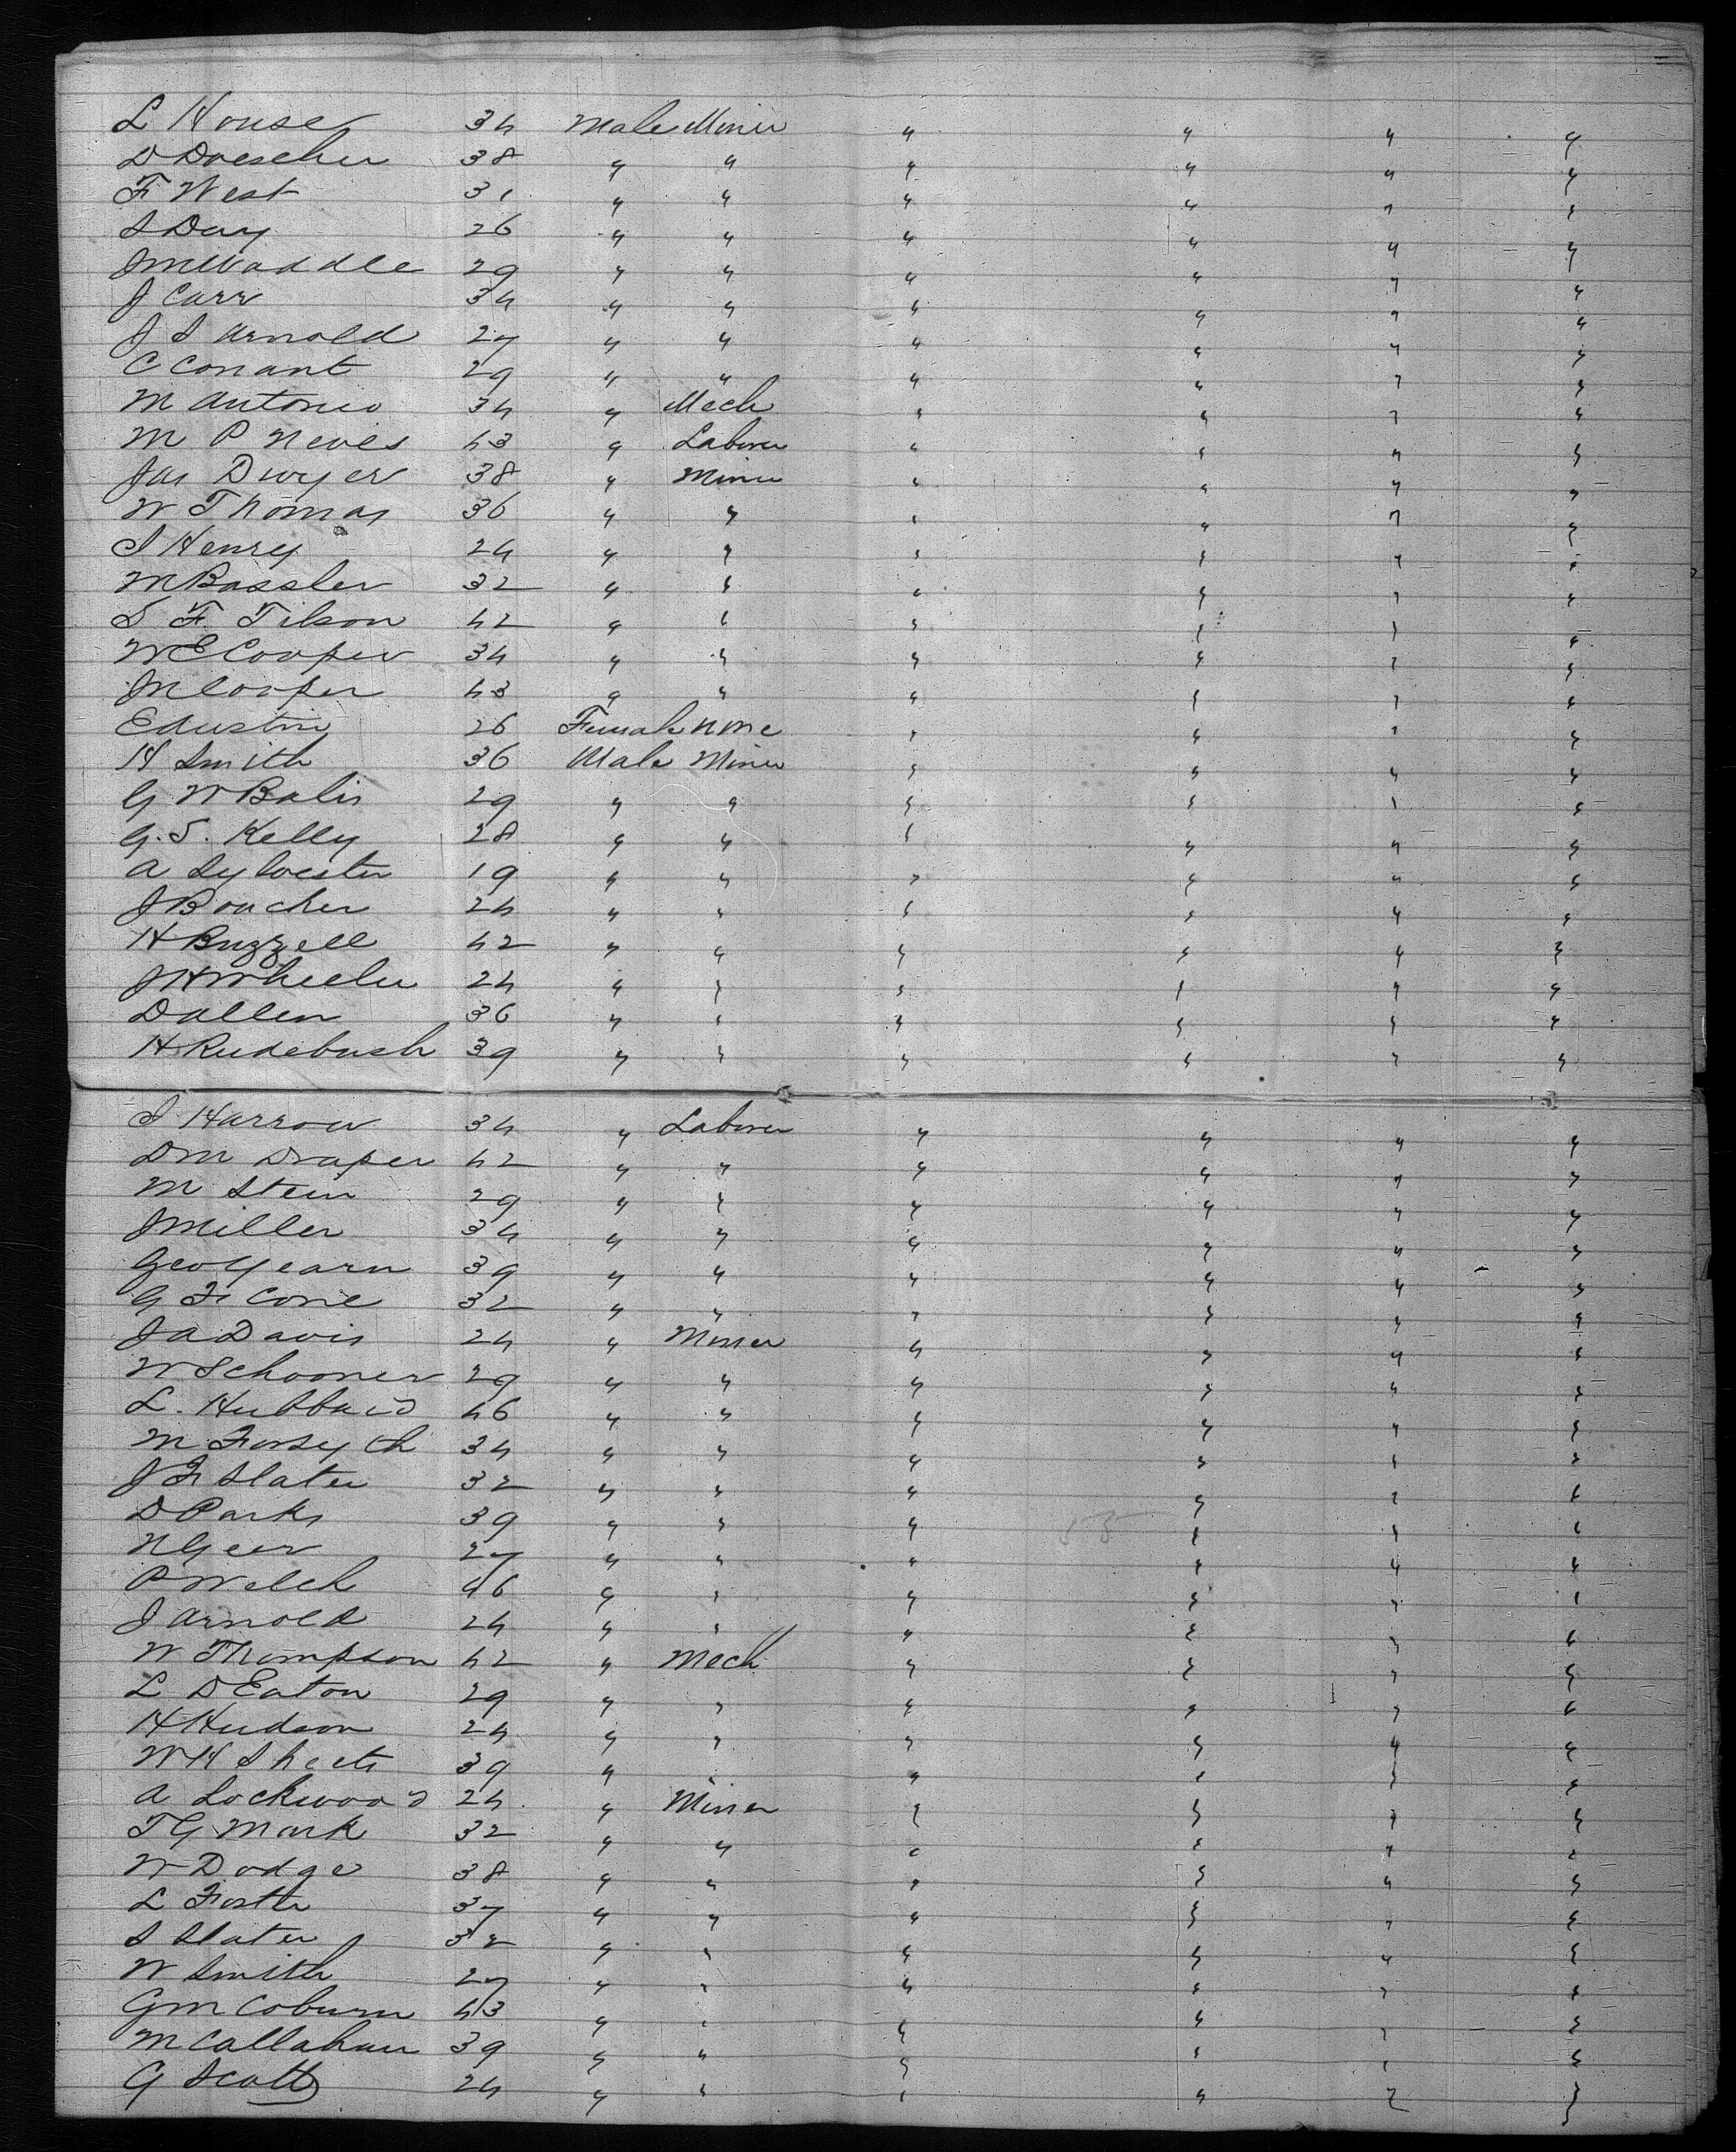 L House 34 Male Miner " " " "
D Doescher 38 " " " " " "
F West 31 " " " " " "
S Day 26 " " " " " "
J M Waddle 29 " " " " " "
J Carr 34 " " " " " "
J S Arnold 27 " " " " " "
C Conant 29 " " " " " "
M Antonio 34 " Mech " " " "
M P Neves 43 " Laborer " " " "
Jas Dwyer 38 " Miner " " " "
W Thomas 36 " " " " " "
S Henry 24 " " " " " "
M Bassler 32 " " " " " "
S F Tilson 42 " " " " " "
W E Cooper 34 " " " " " "
J M Cooper 43 " " " " " "
E Austin 26 Female none " " " "
H Smith 36 Male Miner " " " "
G W Balis 29 " " " " " "
G. S. Kelly 28 " " " " " "
A Sylvester 19 " " " " " "
J Boucher 24 " " " " " "
H Buzzell 42 " " " " " "
J H Wheeler 24 " " " " " "
D Allen 36 " " " " " "
H Rudebush 39 " " " " " "
S Harrow 34 " Laborer " " " "
D M Draper 42 " " " " " "
M Stein 29 " " " " " "
J Miller 34 " " " " " "
Geo Yearn 39 " " " " " "
G F Cone 32 " " " " " "
J A Davis 24 " Miner " " " "
W Schooner 29 " " " " " "
L. Hubbard 46 " " " " " "
M Forsyth 34 " " " " " "
J F Slater 32 " " " " " "
D Parks 39 " " " " " "
N Geer 27 " " " " " "
P Welch 46 " " " " " "
J Arnold 24 " " " " " "
W Thompson 42 " Mech " " " "
L D Eaton 29 " " " " " "
H Hudson 24 " " " " " "
W H Sheets 39 " " " " " "
A Lockwood 24 " Miner " " " "
T G Mark 32 " " " " " "
W Dodge 38 " " " " " "
L Foster 37 " " " " " "
S Slater 32 " " " " " "
W Smith 27 " " " " " "
G M Coburn 43 " " " " " "
M Callahan 39 " " " " " "
G Scott 24 " " " " " "